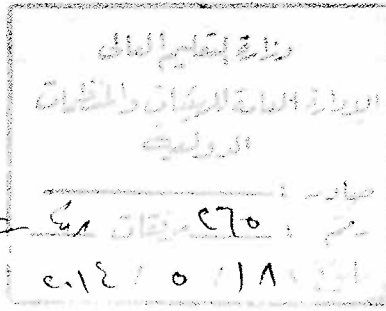 وزارة التعليم العالي
الإدارة العامة للهيئات والمنظمات
الدولية
صادر :
رقم : ٢٦٥ مرفقات
٢٠١٤ / ٥ / ١٨